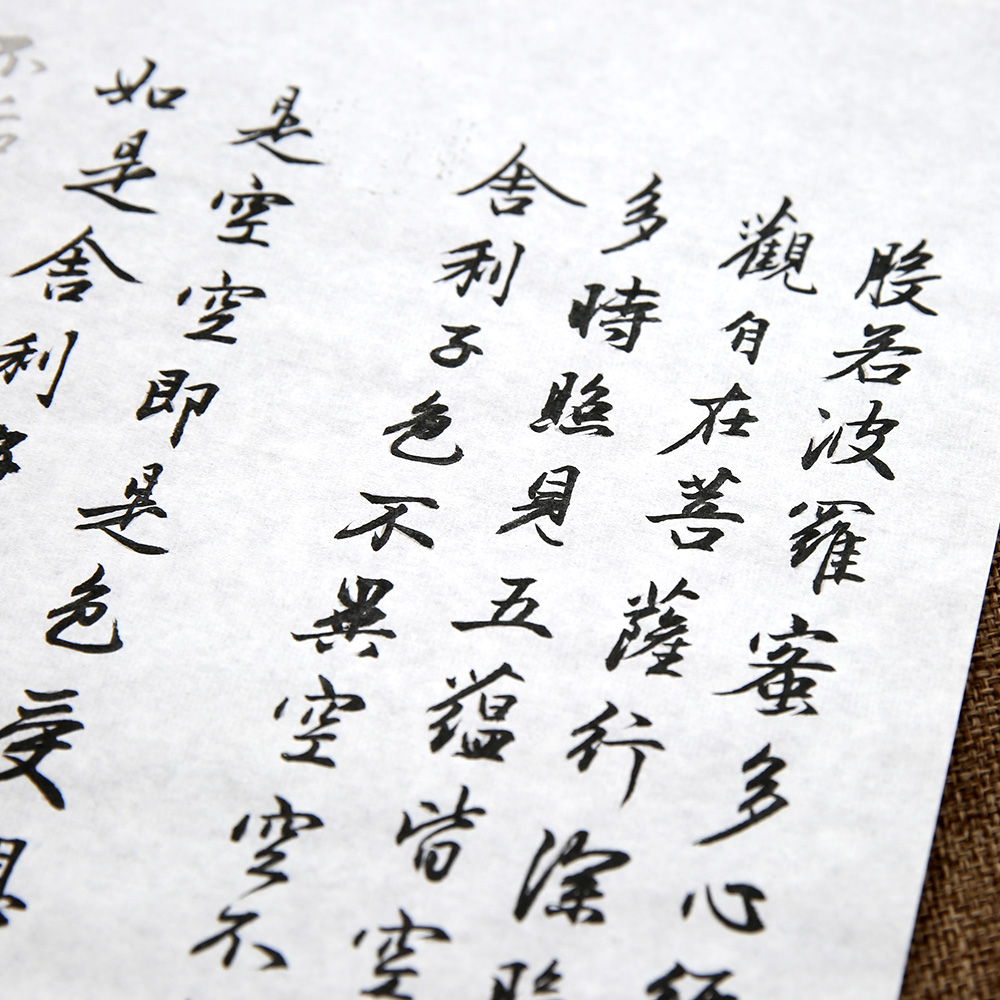 般若波羅蜜多心
觀自在菩薩行深般
多時照見五蘊皆空
舍利子色不異空空不
是空空即是色受想
如是舍利子